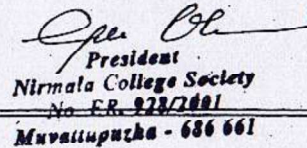 President
Nirmala College Society
No. ER. 928/2001
Muvattupuzha - 686 661